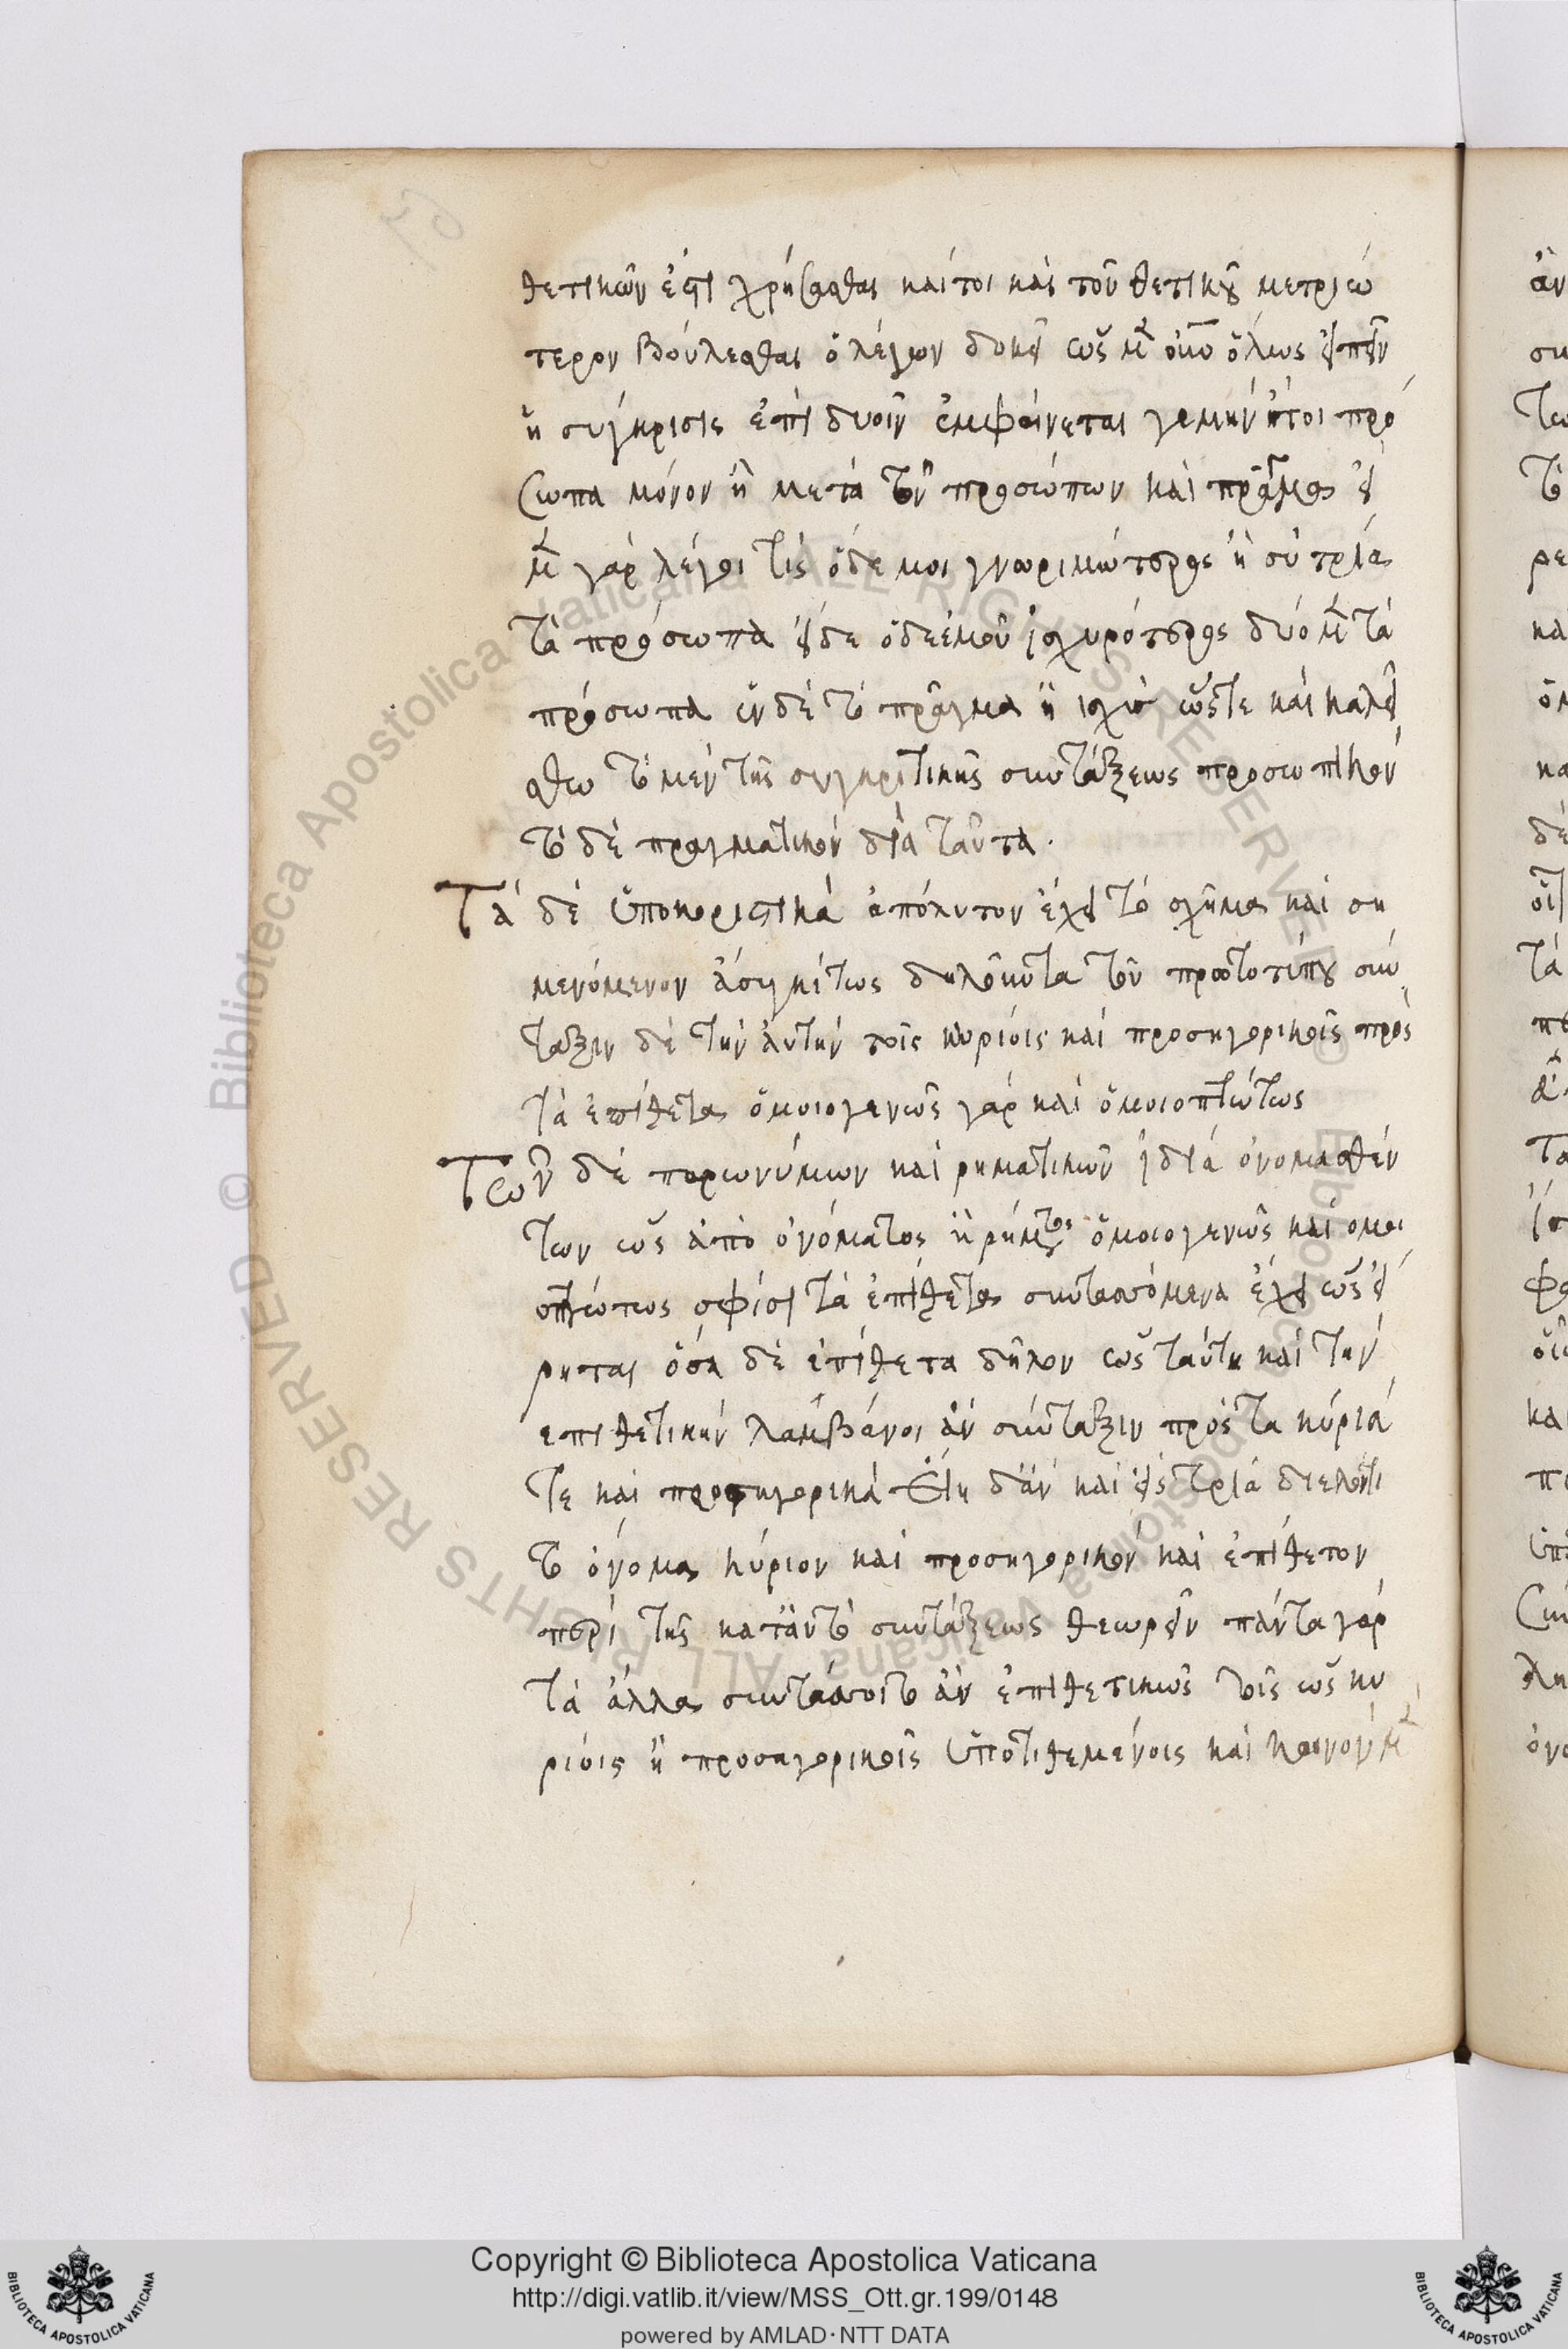 θετικῶν ἐστὶ χρήσασθαι καίτοι καὶ τοῦ θετικοῦ μετριώ
τερον βούλεσθαι ὁ λέγων δοκεῖ ὡς μὲν οὖν ὅλως εἰπεῖν
ἡ σύγκρισις ἐπὶ δυοῖν ἐμφαίνεται γεμὴν ἤτοι πρό
σωπα μόνον ἢ μετὰ τῶν προσώπων καὶ πρᾶγμα εἰ
μὲν γὰρ λέγοι τὶς ὅδε μοι γνωριμώτερος ἢ σὺ τρία
τὰ πρόσωπα εἰ δε ὅδε ἐμοῦ ἰσχυρότερος δύο μὲν τὰ
πρόσωπα ἓν δὲ τὸ πρᾶγμα ἡ ἰσχὺς ὥστε καὶ καλεί
σθω τὸ μὲν τῆς συγκριτικῆς συντάξεως προσωπικὸν
τὸ δὲ πραγματικὸν διὰ ταῦτα.
Τὰ δὲ ὑποκοριστικὰ ἀπόλυτον ἔχει τὸ σχῆμα καὶ ση
μενόμενον ἀσυγκρίτως δηλοῦντα τοῦ πρωτοτύπου σύν
ταξιν δὲ τὴν ἀυτὴν τοῖς κυρίοις καὶ προσηγορικοῖς πρὸς
τὰ ἐπίθετα ὁμοιογενῶς γὰρ καὶ ὁμοιοπτώτως
Τῶν δὲ παρωνύμων καὶ ρηματικῶν ἰδία ὀνομασθέν
των ὡς ἀπὸ ὀνόματος ἢ ρήματος ὁμοιογενῶς καὶ ομοι
οπτώτως σφίσι τὰ ἐπίθετα συντασσόμενα ἔχει ὡς εἴ
ρηται ὅσα δὲ ἐπίθετα δῆλον ὡς ταύτη καὶ τὴν
επιθετικὴν λαμβάνοι ἂν σύνταξιν πρὸς τα κύριά
τε καὶ προσηγορικά Εἴη δἂν καὶ εἰς τρία διελόντι
τὸ ὄνομα κύριον καὶ προσηγορικὸν καὶ ἐπίθετον
περὶ τῆς κατἀυτὸ συντάξεως θεωρεῖν πάντα γὰρ
τὰ ἄλλα συντάσσοιτο ἂν ἐπιθετικῶς τοῖς ὡς κυ
ρίοις ἢ προσηγορικοῖς ὑποτιθεμένοις καὶ κοινὸν μὲν
Copyright © Biblioteca Apostolica Vaticana
http://digi.vatlib.it/view/MSS_Ott.gr.199/0148
powered by AMLAD·NTT DATA